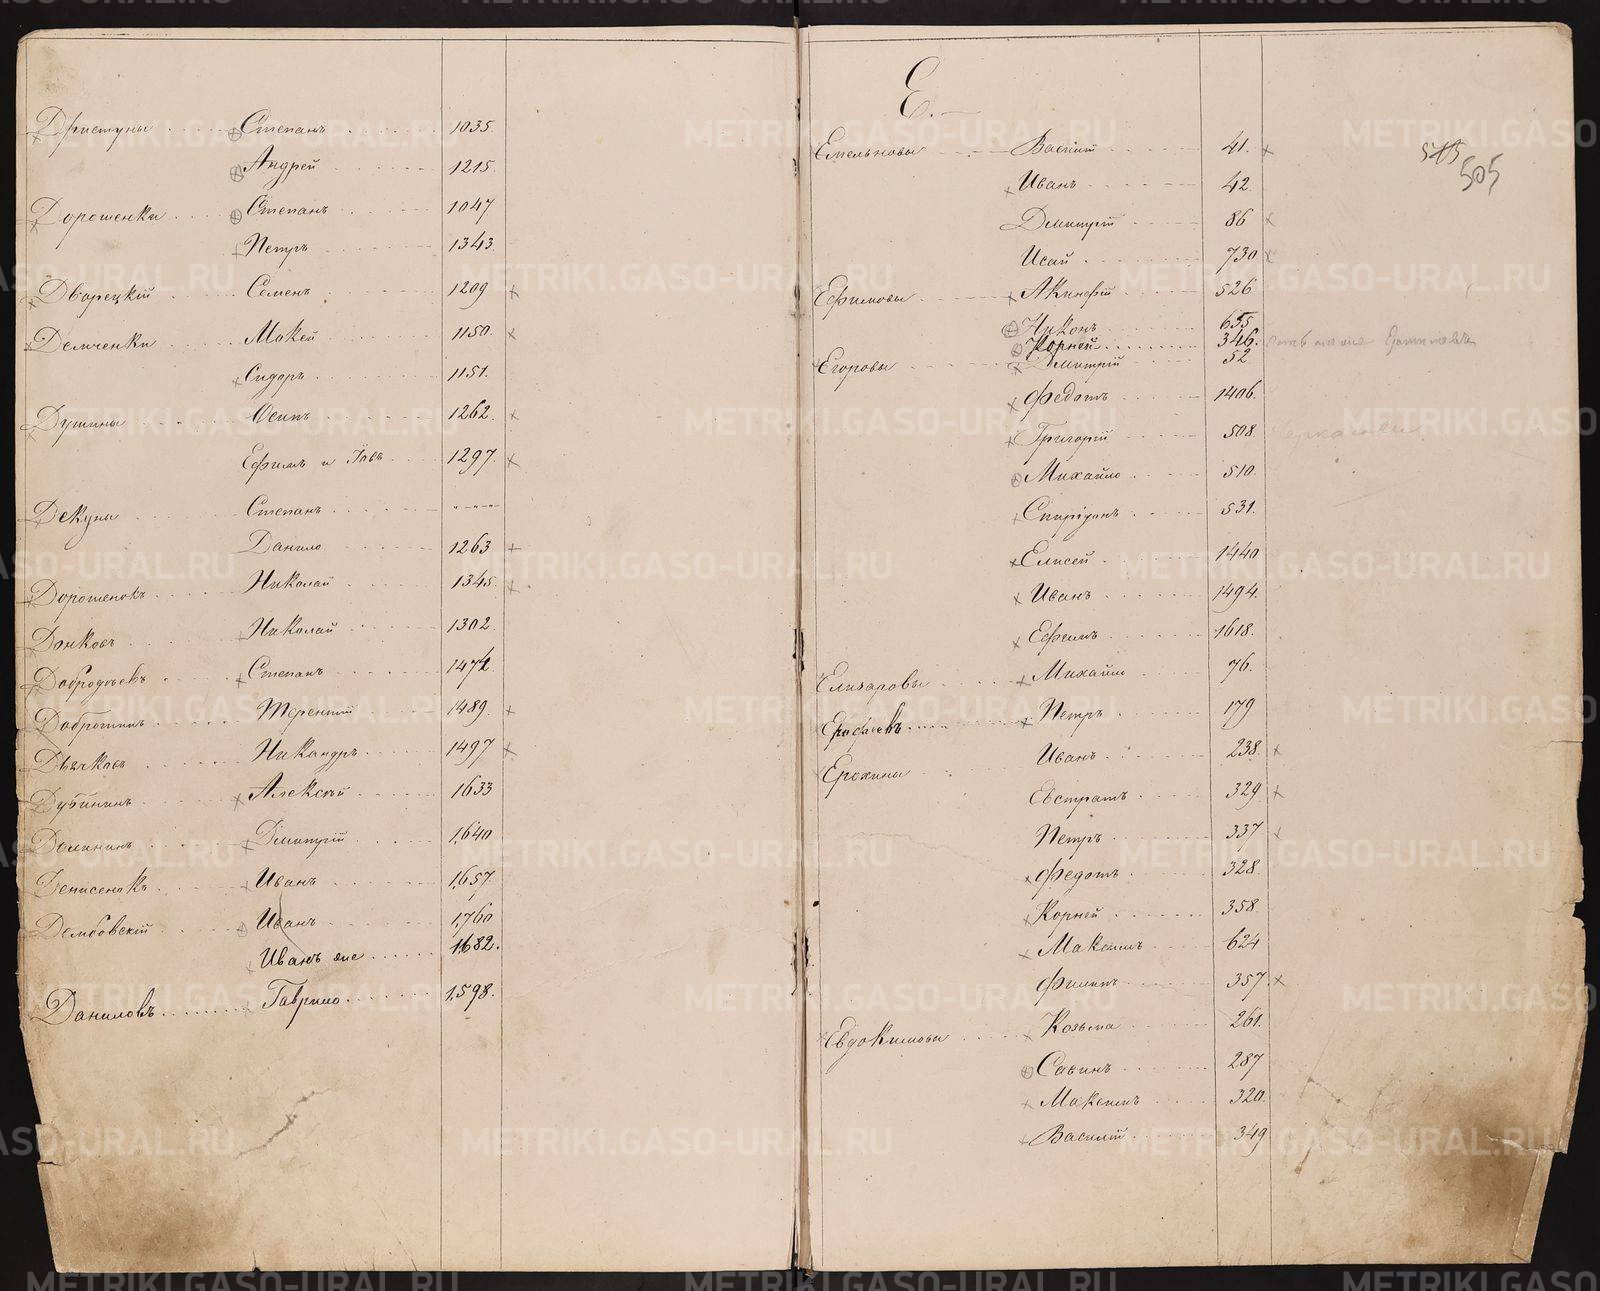 Дристуны Степанъ 1035.
Андрей 1215.
Дорошенки Степанъ 1047
Петръ 1343.
Дворецкій Семенъ 1209 ×
Демченки Мокей 1150. ×
Сидоръ 1151.
Душины Осипъ 1262. ×
Ефимъ и 1297. ×
Декуны Степанъ
Данило 1263 ×
Дорошенокъ Николай 1345. ×
Донковъ Николай 1302
Степанъ
Терентій 1489. ×
Никандръ 1497 ×
Дубининъ Алексѣй 1633
Дёминъ Дмитрій 1640
Денисенокъ Иванъ 1657.
Дембовскій Иванъ 1760
Иванъ 1682.
Даниловъ Гаврило 1598.
Е.
505
Емельяновы Василій 41. ×
Иванъ 42
Дмитрій 86 ×
Исай 730 ×
Ефимовы Акинфій 526
Никонъ 655
Корней 346.
Егоровы Дмитрій 52
Федотъ 1406.
Григорій 508.
Михайло 510.
Спиридонъ 531.
Елисей 1440
Иванъ 1494.
Ефимъ 1618.
Елизаровы Михайло 76.
Ерофеевъ Петръ 179
Ерохины Иванъ 238. ×
Евстратъ 329 ×
Петръ 337 ×
Федотъ 328
Корней 358
Максимъ 624
Филипъ 357. ×
Евдокимовы Козьма 261.
Савинъ 287
Максимъ 320.
Василій 349
METRIKI.GASO-URAL.RU